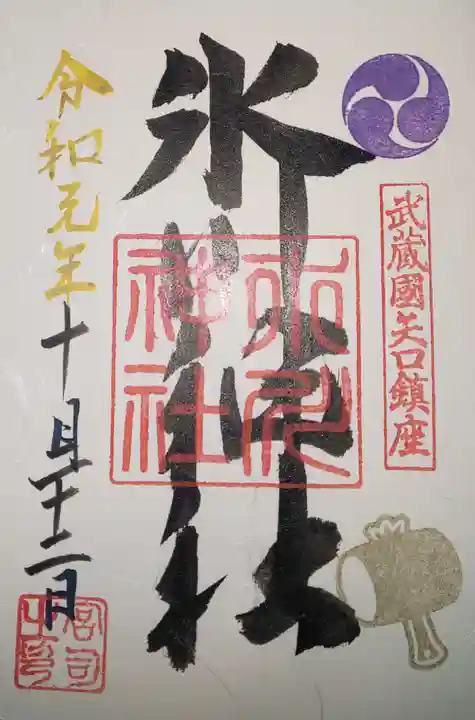 武蔵國矢口鎮座
氷川神社
氷川神社
令和元年十月二十二日
宮司之印